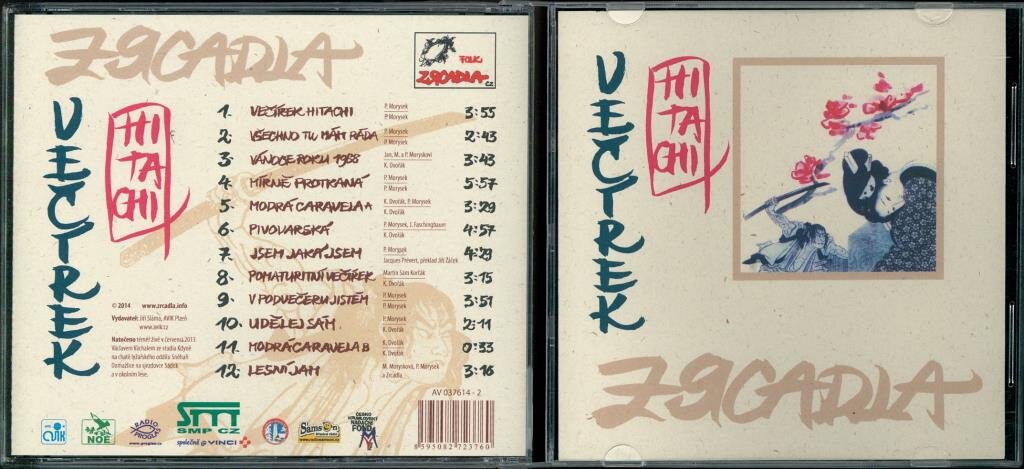 ZRCADLA
VEČÍREK
HITACHI
FOLK
ZRCADLA.CZ
1. VEČÍREK HITACHI P. Morysek P. Morysek 3:55
2. VŠECHNO TU MÁM RÁDA P. Morysek P. Morysek 2:43
3. VÁNOCE ROKU 1988 Jan, M. a P. Moryskovi K. Dvořák 3:43
4. MÍRNĚ PROTKANÁ P. Morysek P. Morysek 5:57
5. MODRÁ CARAVELA A K. Dvořák, P. Morysek K. Dvořák 3:29
6. PIVOVARSKÁ P. Morysek, J. Faschingbauer K. Dvořák 4:57
7. JSEM JAKÁ JSEM P. Morysek Jacques Prévert, překlad Jiří Žáček 4:29
8. POMATURITNÍ VEČÍREK Martin Sam Korčák K. Dvořák 3:15
9. V PODVEČERU JISTÉM P. Morysek P. Morysek 3:51
10. UDĚLEJ SÁM P. Morysek K. Dvořák 2:11
11. MODRÁ CARAVELA B K. Dvořák K. Dvořák 0:33
12. LESNÍ JAM M. Morysková, P. Morysek a Zrcadla 3:16
© 2014 www.zrcadla.info
Vydavatel: Jiří Sláma, AVIK Plzeň
www.avik.cz
Natočeno téměř živě v červenci 2013
Václavem Váchalem ze studia Kdyně
na chatě lyžařského oddílu Sněhaři
Domažlice na sjezdovce Sádek
a v okolním lese.
AVIK
NOE
RADIO PROGLAS
www.proglas.cz
SMP CZ
společně @ VINCI
Samson
ČESKO KRUMLOVSKÝ NADAČNÍ FOND
AV 037614 - 2
8595082723760
VEČÍREK
HITACHI
ZRCADLA